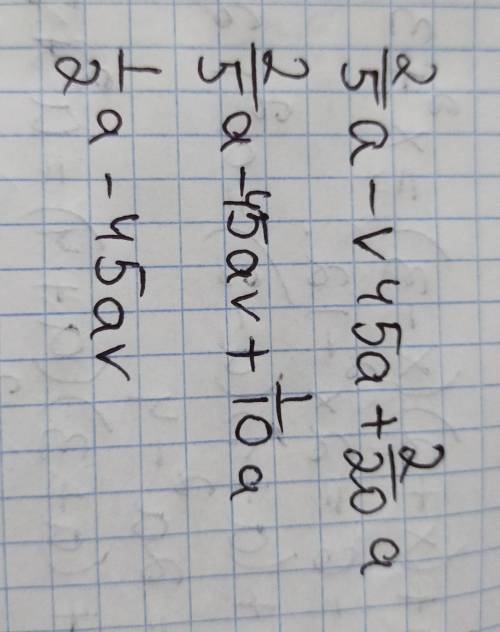 2/5 a - v45a + 2/20 a
2/5 a - 45av + 1/10 a
1/2 a - 45av